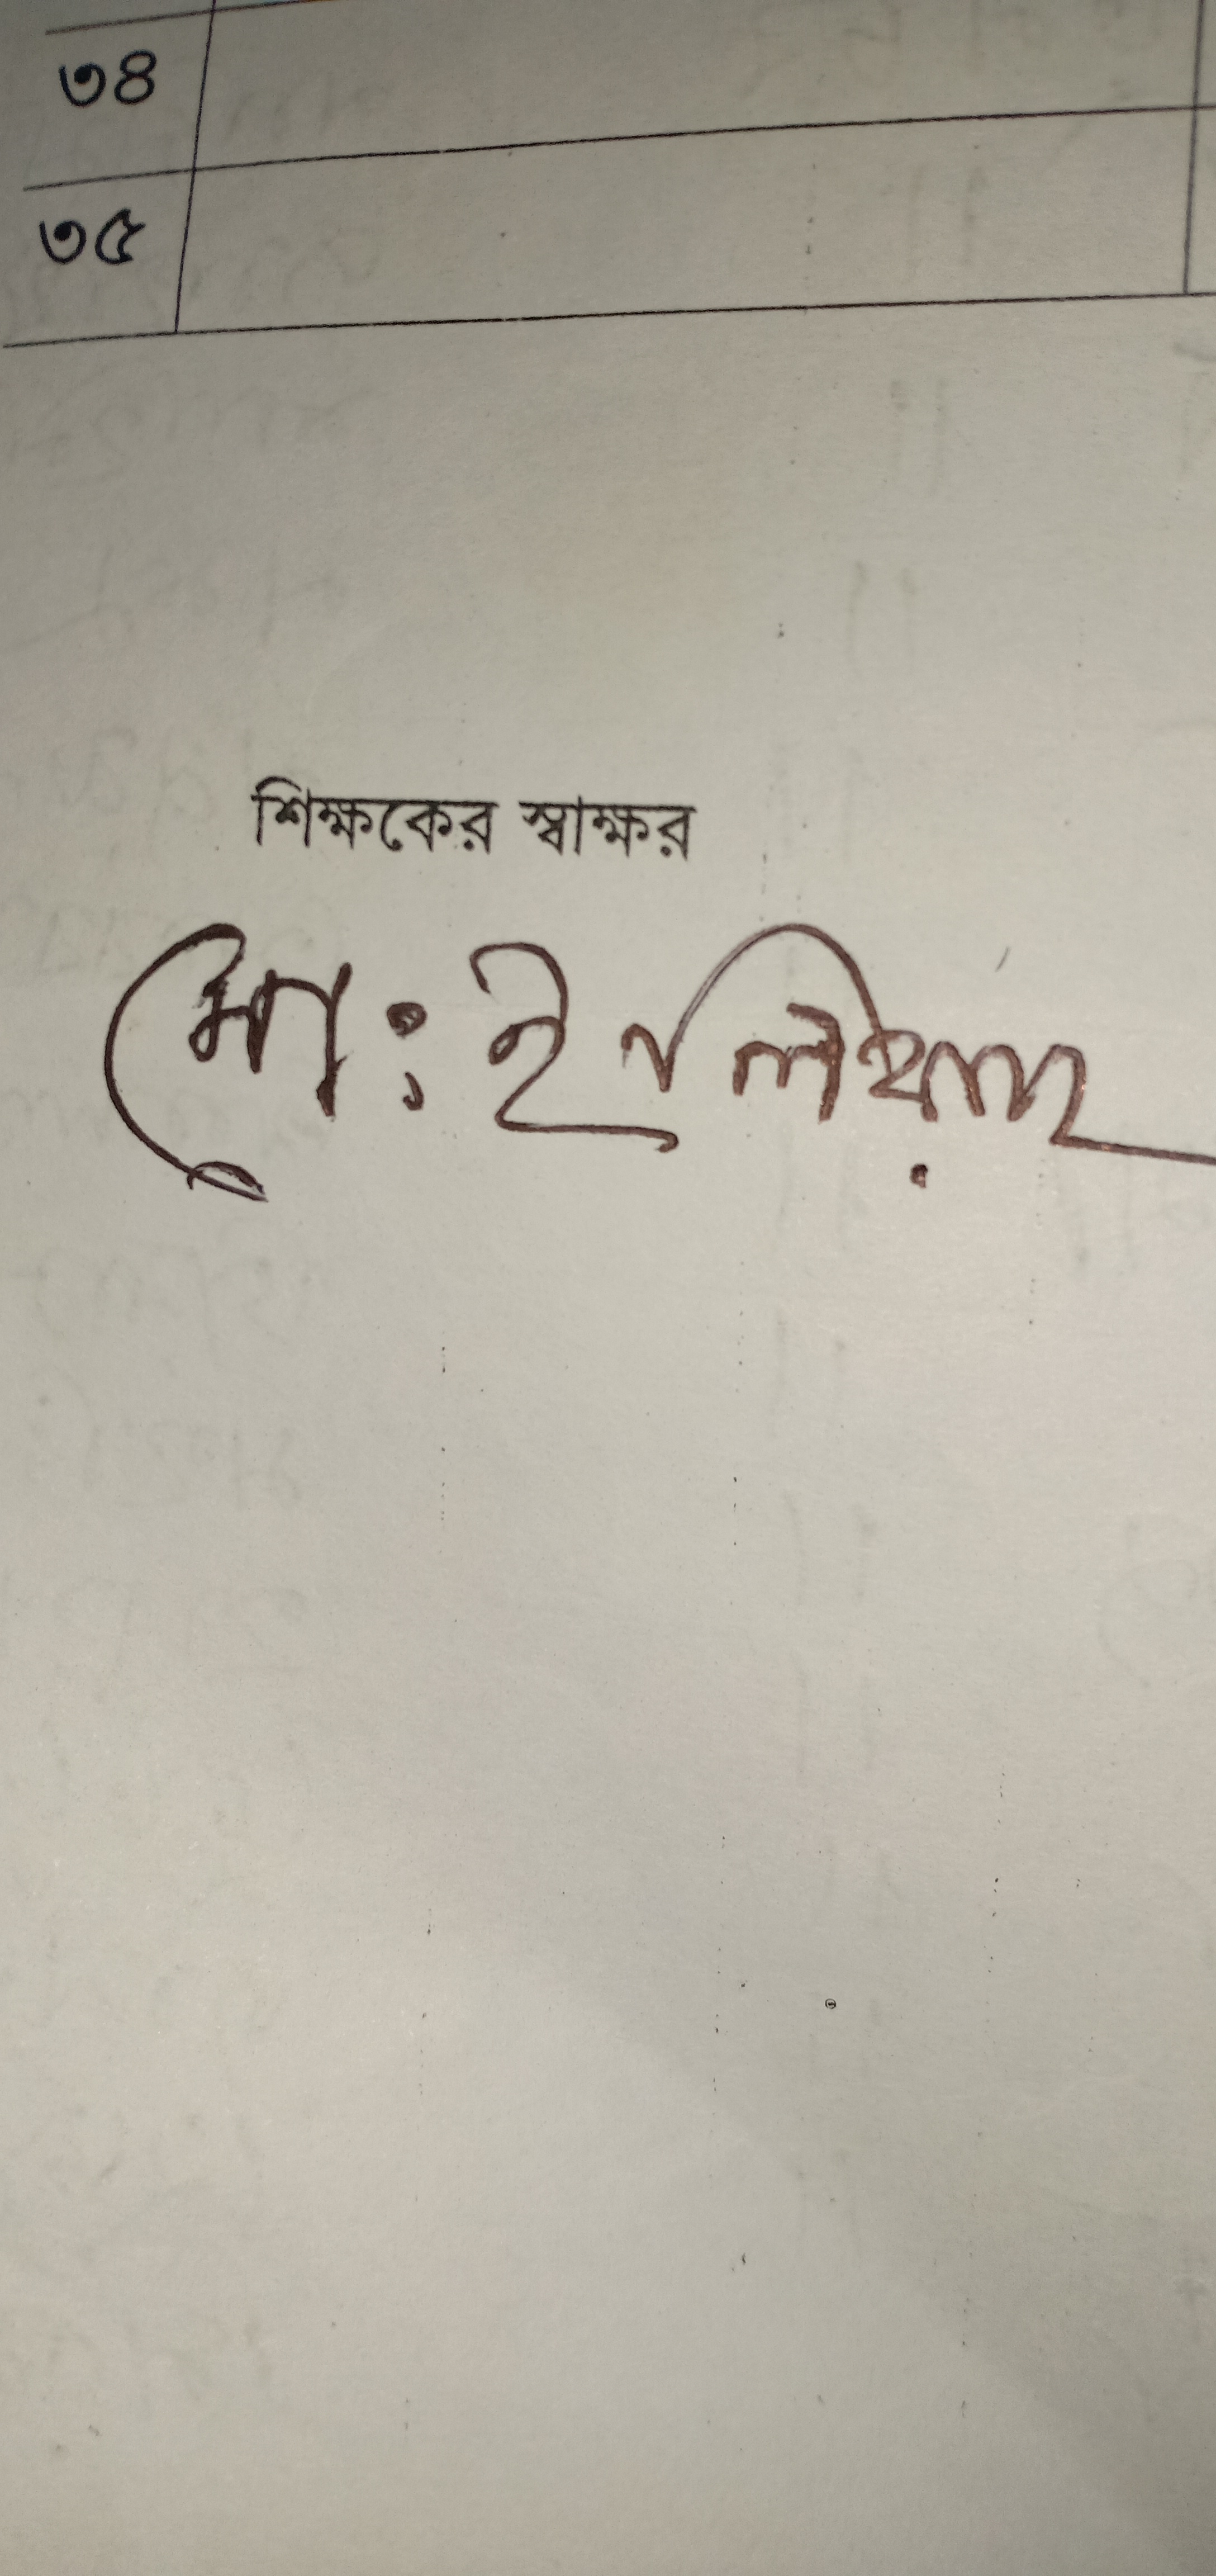 ৩৪
৩৫
শিক্ষকের স্বাক্ষর
মো: ইলিয়াস